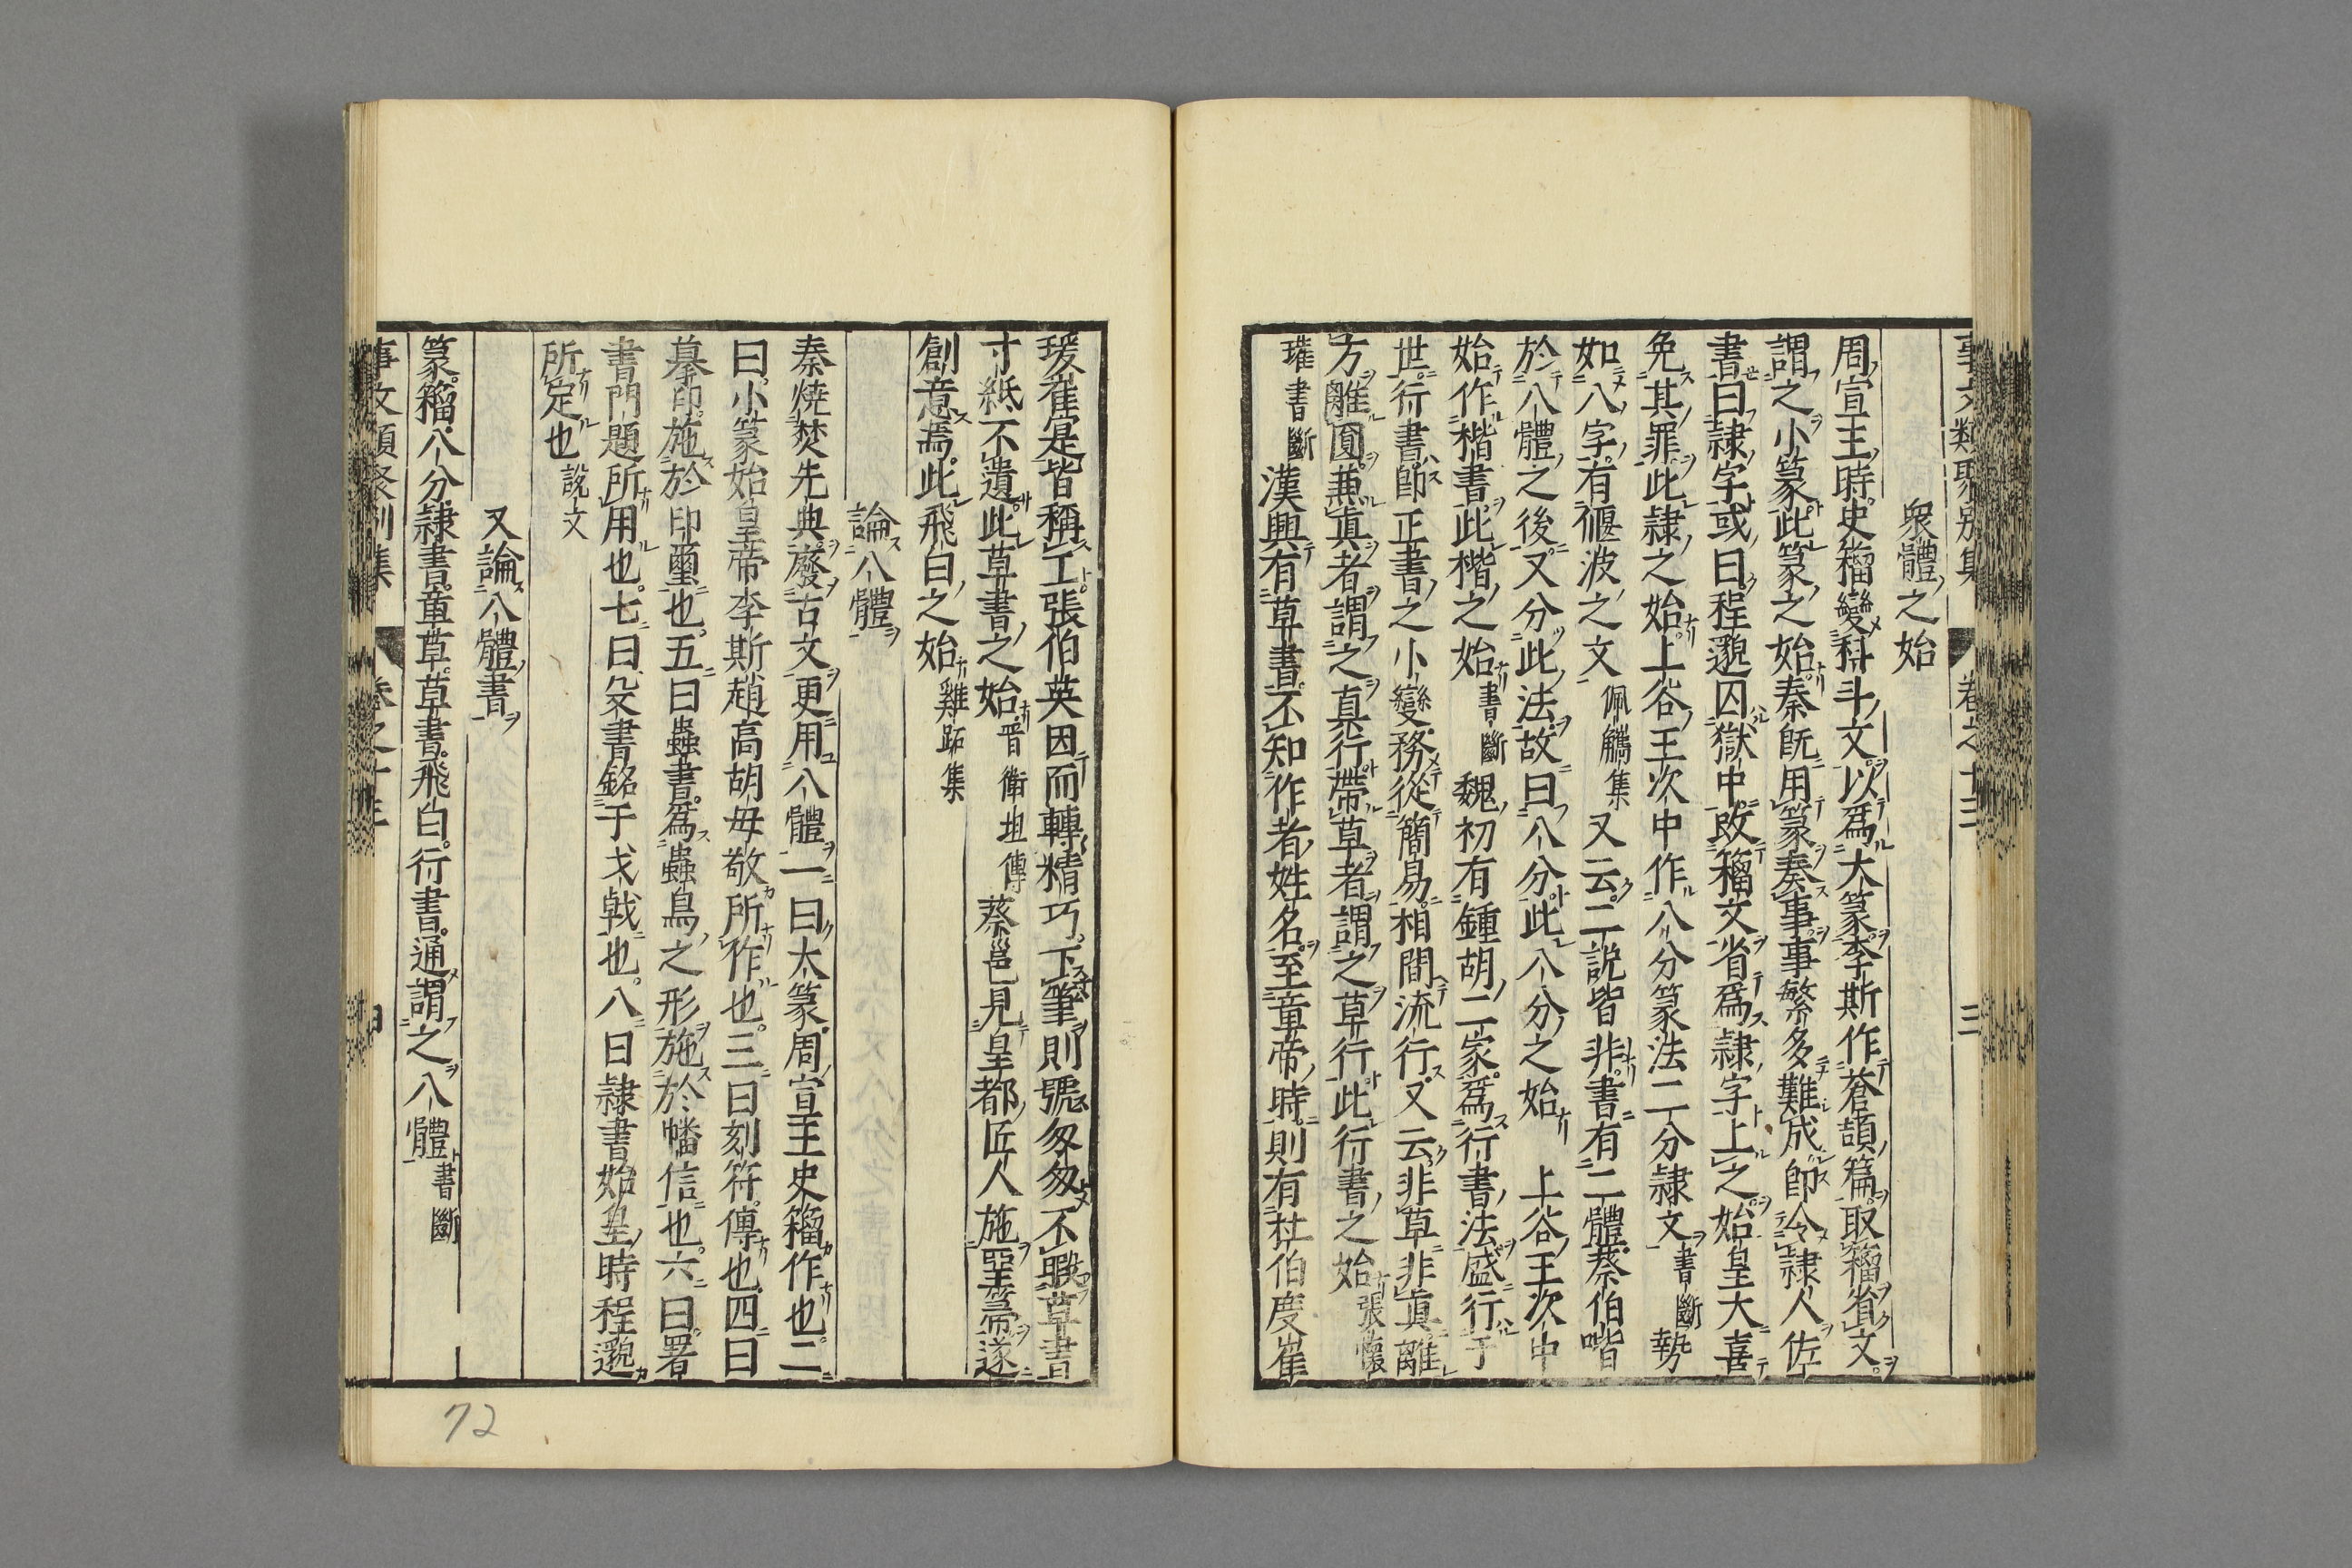 事文類聚別集 卷之十三 三
衆體之始
周宣王時史籀變科斗文以爲大篆李斯作蒼頡篇取籀省文
謂之小篆此篆之始秦旣用篆奏事事繁多難成卽令隷人佐
書曰隷字或曰程邈囚獄中改籀文省爲隷字上之始皇大喜
免其罪此隷之始上谷王次中作八分篆法二分隷文書斷勢
如八字有偃波之文佩觿集又云二說皆非書有二體蔡伯喈
於八體之後又分此法故曰八分此八分之始 上谷王次中
始作楷書此楷之始書斷魏初有鍾胡二家爲行書法盛行于
世行書卽正書之小變務從簡易相間流行又云非草非眞離
方離圓兼眞者謂之眞行帶草者謂之草行此行書之始張懷
瓘書斷漢興有草書不知作者姓名至章帝時則有杜伯度崔
瑗崔寔皆稱工張伯英因而轉精巧下筆則號匆匆不暇草書
寸紙不遺此草書之始晋衛坦傳蔡邕見皇都匠人施堊箒遂
創意焉此飛白之始雞跖集
論八體
秦燒焚先典廢古文更用八體一曰大篆周宣王史籀作也二
曰小篆始皇帝李斯趙高胡毋敬所作也三曰刻符傳也四曰
摹印施於印璽也五曰蟲書爲蟲鳥之形施於幡信也六曰署
書門題所用也七曰殳書銘于戈戟也八曰隷書始皇時程邈
所定也說文
又論八體書
篆籀八分隷書章草草書飛白行書通謂之八體書斷
事文類聚別集 卷之十三 四
72